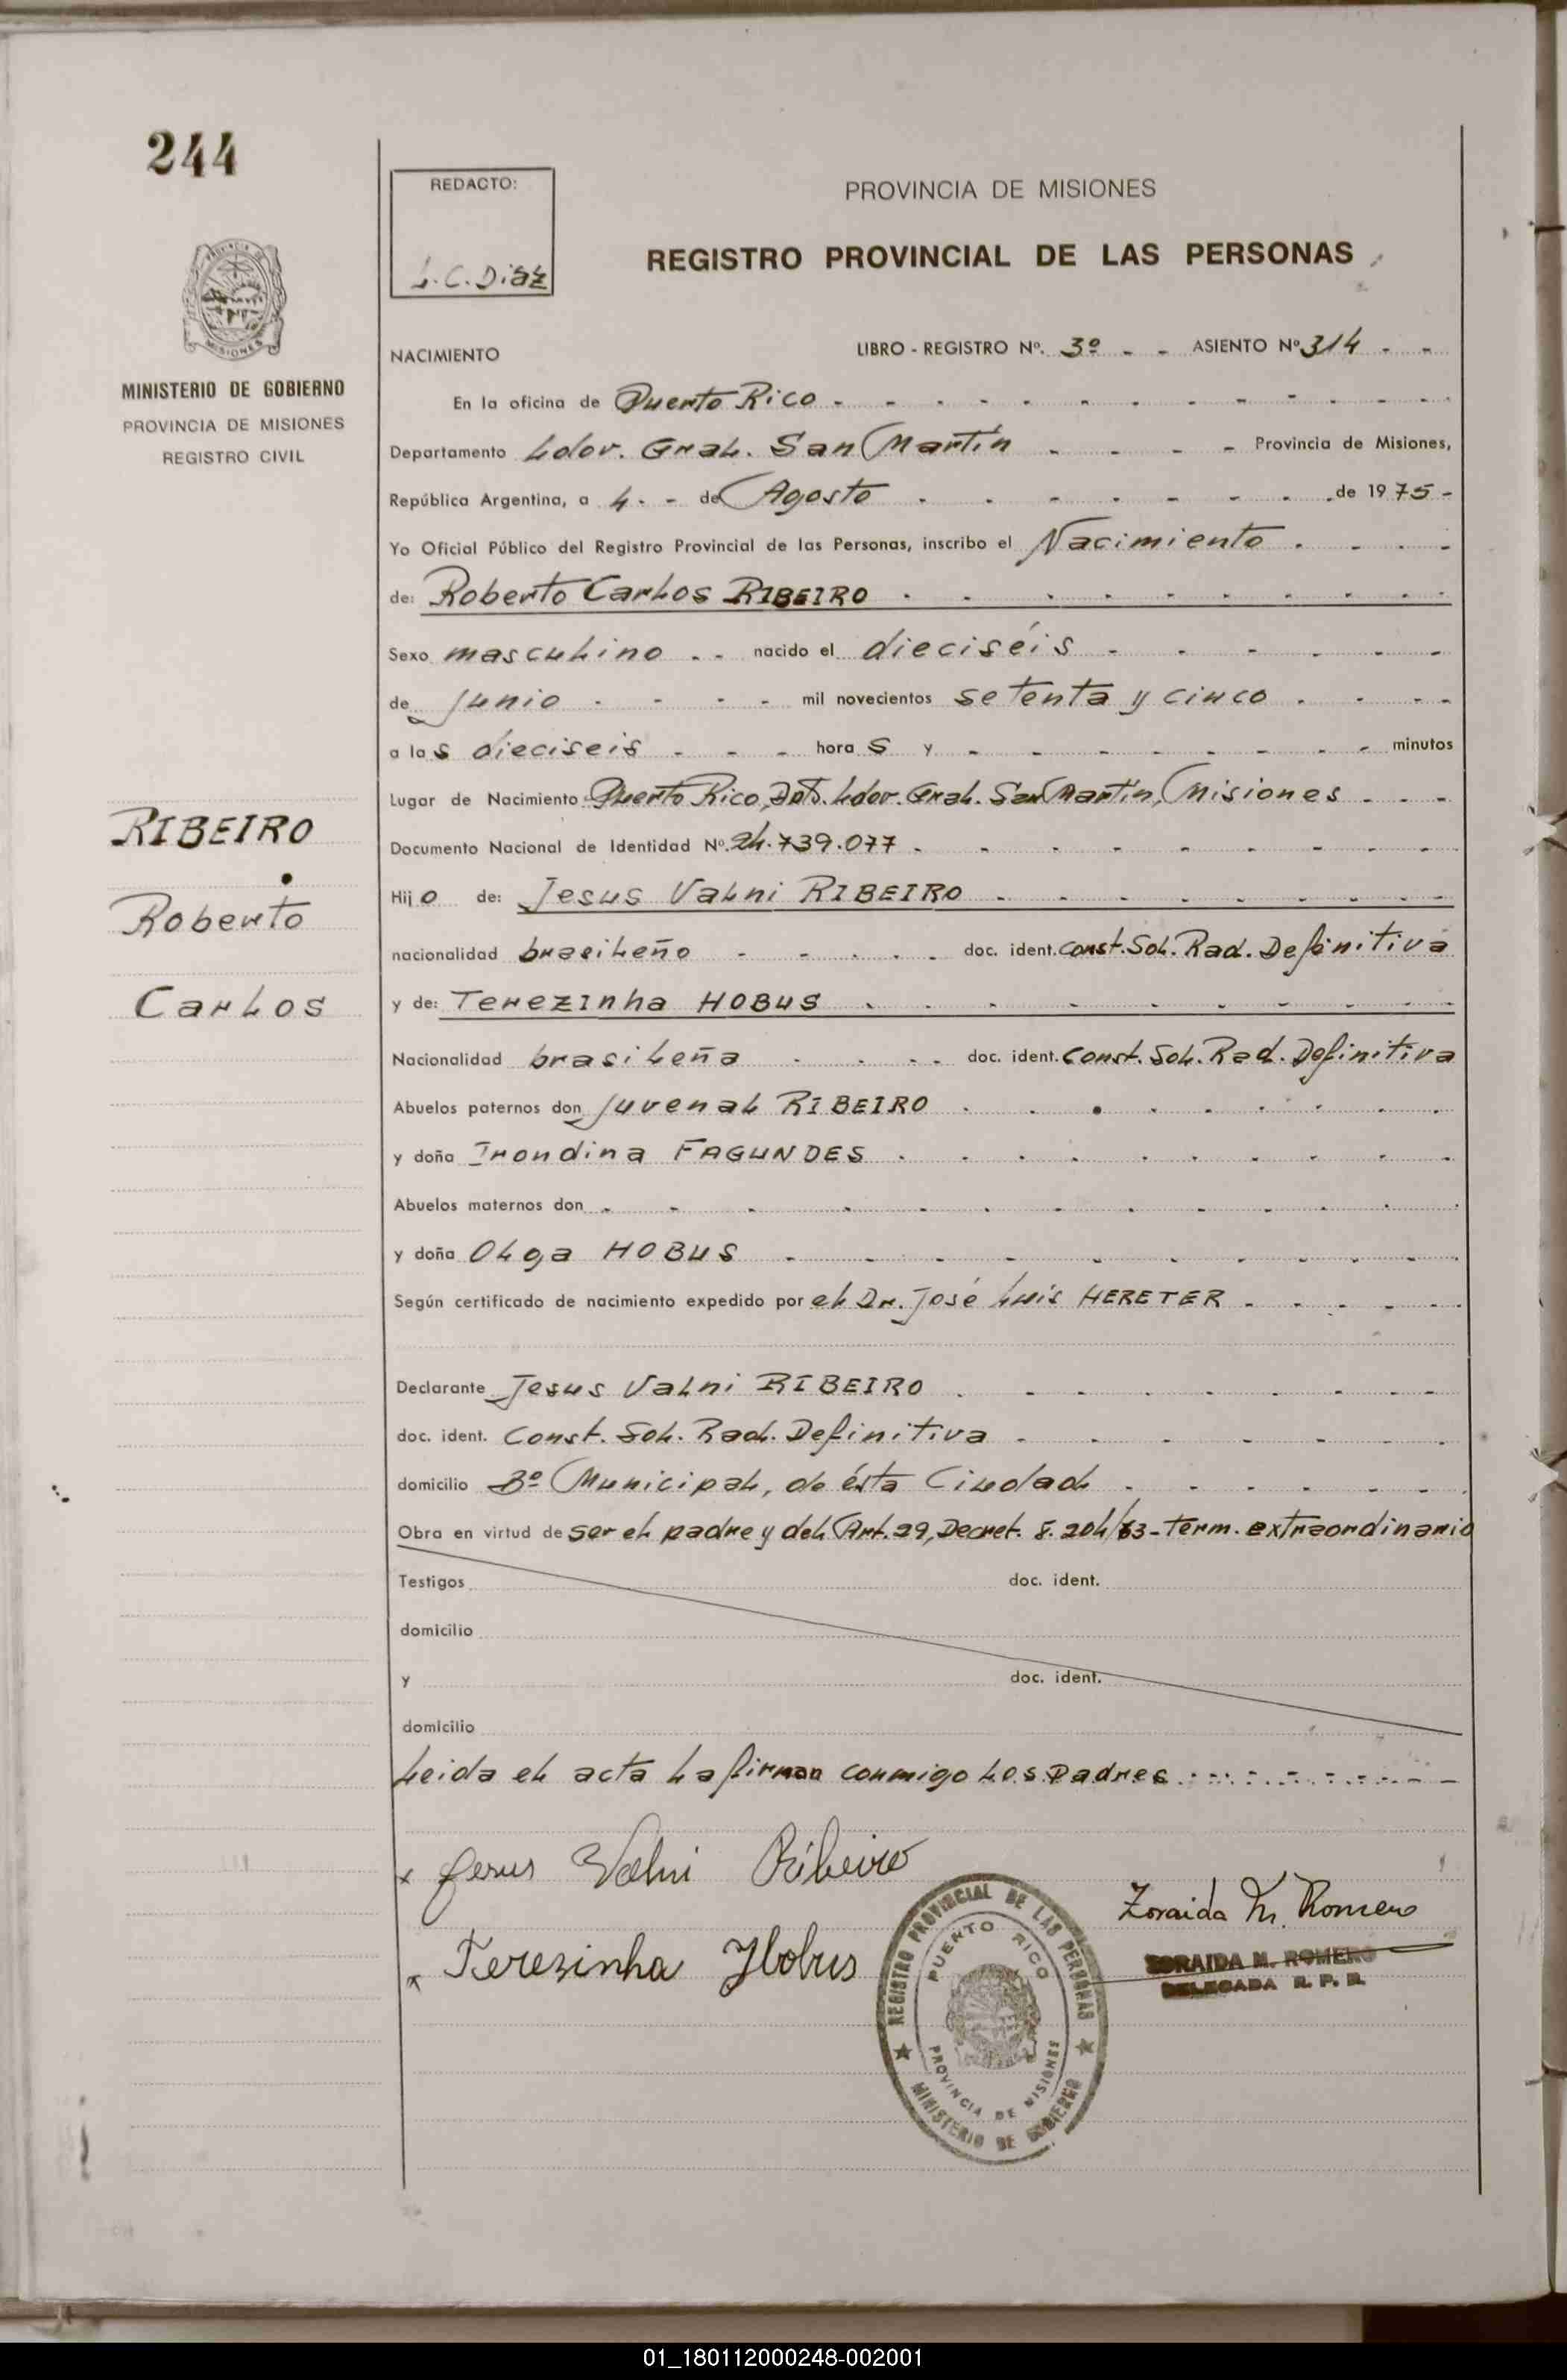 244
REDACTO:
L.C. Diaz
PROVINCIA DE MISIONES
REGISTRO PROVINCIAL DE LAS PERSONAS
MISIONES
MINISTERIO DE GOBIERNO
PROVINCIA DE MISIONES
REGISTRO CIVIL
NACIMIENTO LIBRO - REGISTRO Nº. 3º - - ASIENTO Nº 314 - -
En la oficina de Puerto Rico
Departamento Ldor. Gral. San Martín Provincia de Misiones,
República Argentina, a 4 - de Agosto de 1975 -
Yo Oficial Público del Registro Provincial de las Personas, inscribo el Nacimiento
de: Roberto Carlos RIBEIRO
Sexo masculino nacido el dieciséis
de Junio mil novecientos setenta y cinco
a las dieciseis horas y minutos
Lugar de Nacimiento Puerto Rico, Dpto. Ldor. Gral. San Martín, Misiones
Documento Nacional de Identidad Nº 24.739.077
RIBEIRO
Roberto
Carlos
Hijo de: Jesus Valni RIBEIRO
nacionalidad brasileño doc. ident. Const. Sol. Rad. Definitiva
y de: Terezinha HOBUS
Nacionalidad brasileña doc. ident. Const. Sol. Rad. Definitiva
Abuelos paternos don Juvenal RIBEIRO
y doña Irondina FAGUNDES
Abuelos maternos don
y doña Olga HOBUS
Según certificado de nacimiento expedido por el Dr. José Luis HERETER
Declarante Jesus Valni RIBEIRO
doc. ident. Const. Sol. Rad. Definitiva
domicilio Bº Municipal, de ésta Ciudad
Obra en virtud de ser el padre y del Art. 29, Decret. 8.204/63 - Term. extraordinario
Testigos doc. ident.
domicilio
y doc. ident.
domicilio
Leida el acta la firman conmigo los Padres
x Jesus Valni Ribeiro
Zoraida M. Romero
x Terezinha Hobus
ZORAIDA M. ROMERO
DELEGADA R. P. P.
REGISTRO PROVINCIAL DE LAS PERSONAS
PUERTO RICO
PROVINCIA DE MISIONES
MINISTERIO DE GOBIERNO
01_180112000248-002001